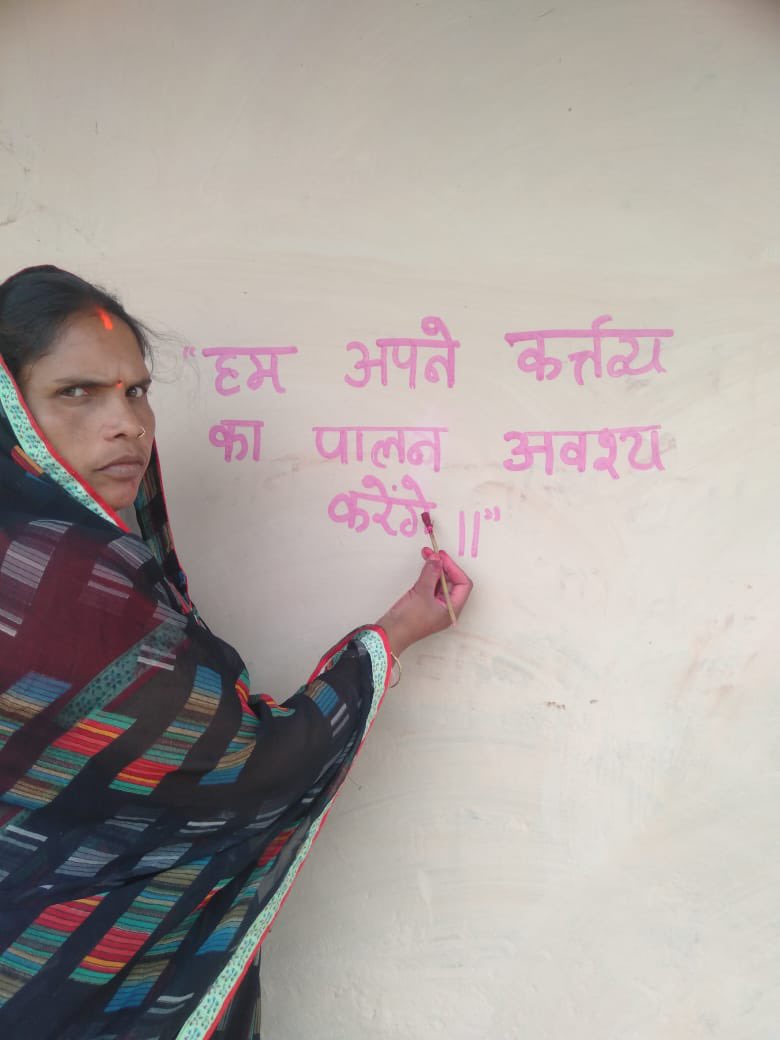 "हम अपने कर्त्तव्य
का पालन अवश्य
करेंगे ॥"